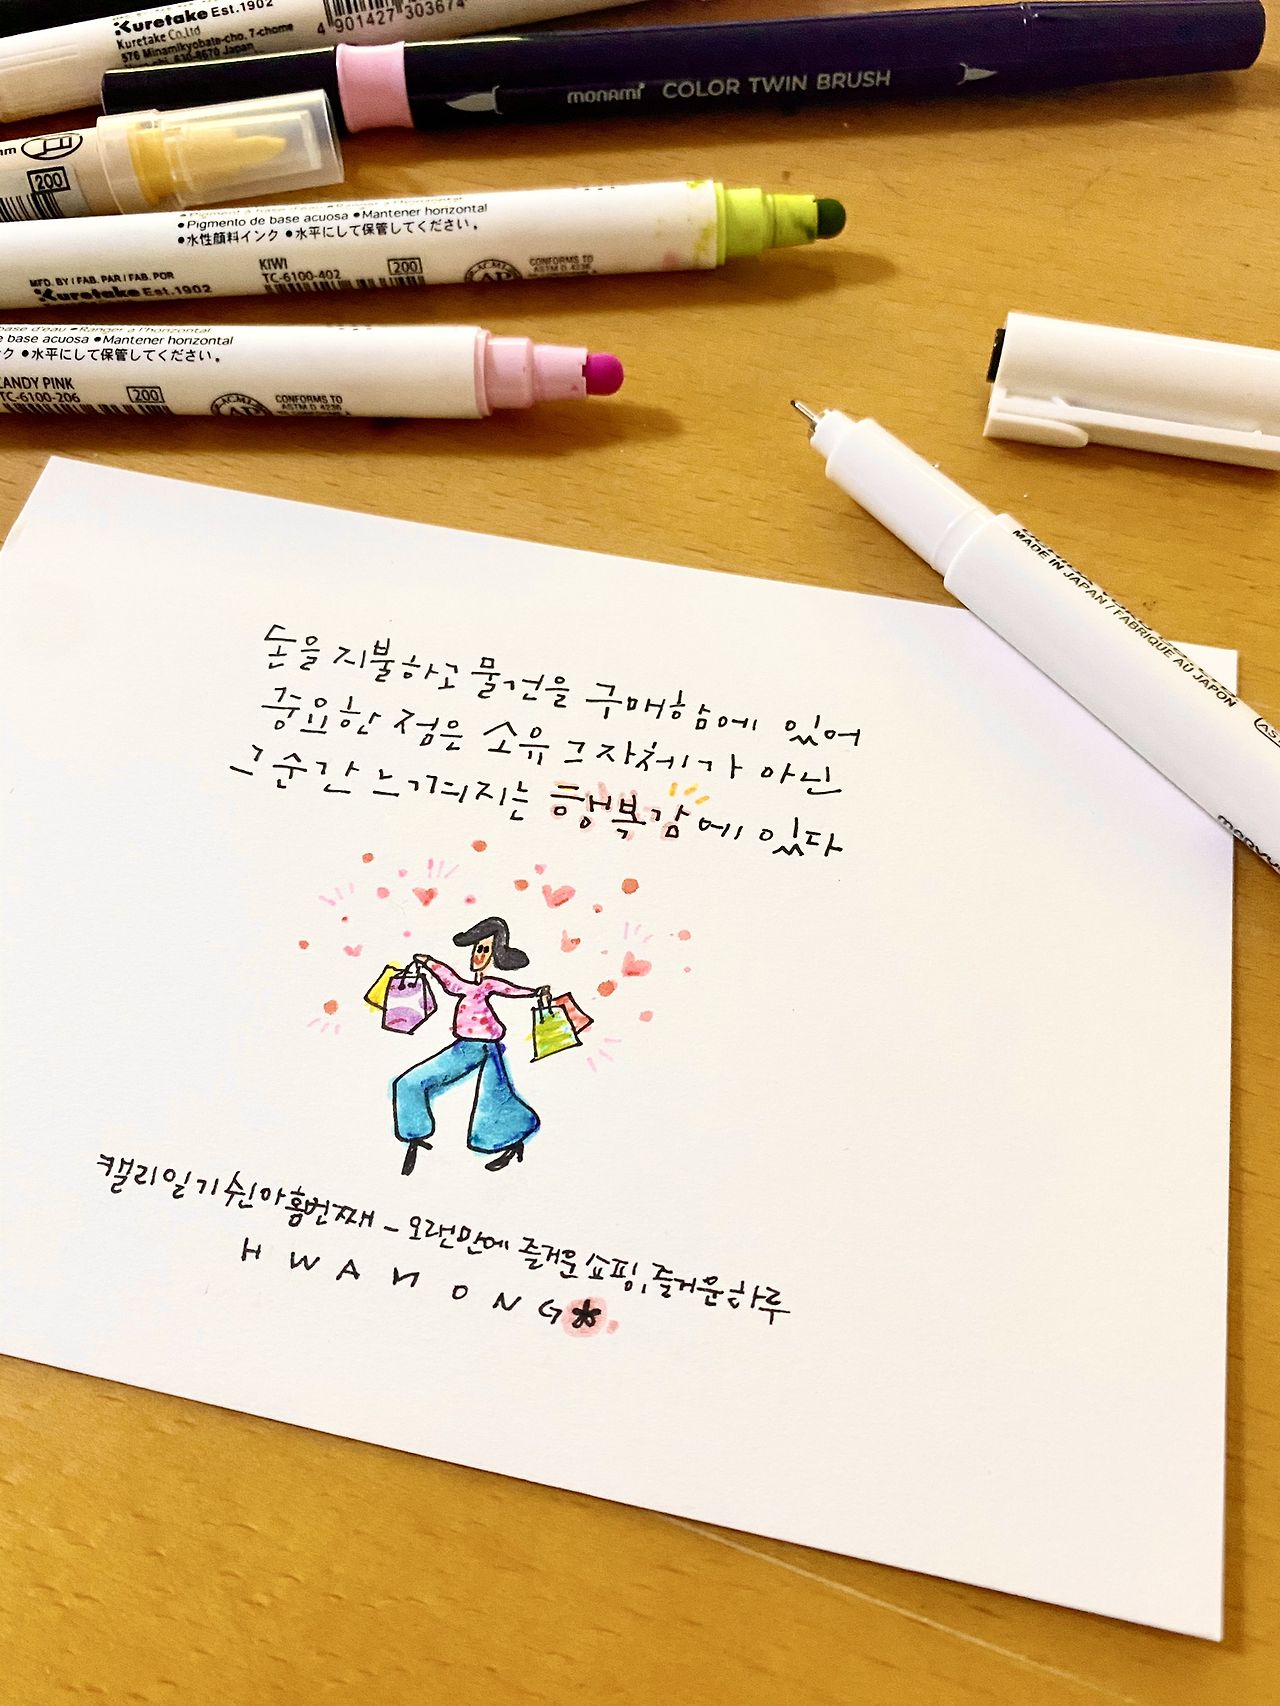 Kuretake Est.1902
Kuretake Co.Ltd
576 Minamikyobate-cho, 7-chome
630-8670 Japan
4 901427 303674
monami COLOR TWIN BRUSH
200
•Pigmento de base acuosa •Mantener horizontal
•水性顔料インク •水平にして保管してください。
MFD. BY / FAB. PAR / FAB. POR
Kuretake Est.1902
KIWI
TC-6100-402
200
CONFORMS TO
ASTM D 4236
base d'eau •Ranger à l'horizontal
base acuosa •Mantener horizontal
ク •水平にして保管してください。
CANDY PINK
TC-6100-206
200
CONFORMS TO
ASTM D 4236
MADE IN JAPAN / FABRIQUE AU JAPON
돈을 지불하고 물건을 구매함에 있어
중요한 점은 소유 그 자체가 아닌
그 순간 느껴지는 행복감에 있다
캘리일기 쉰아홉번째 - 오랜만에 즐거운 쇼핑, 즐거운 하루
HWAMONG*